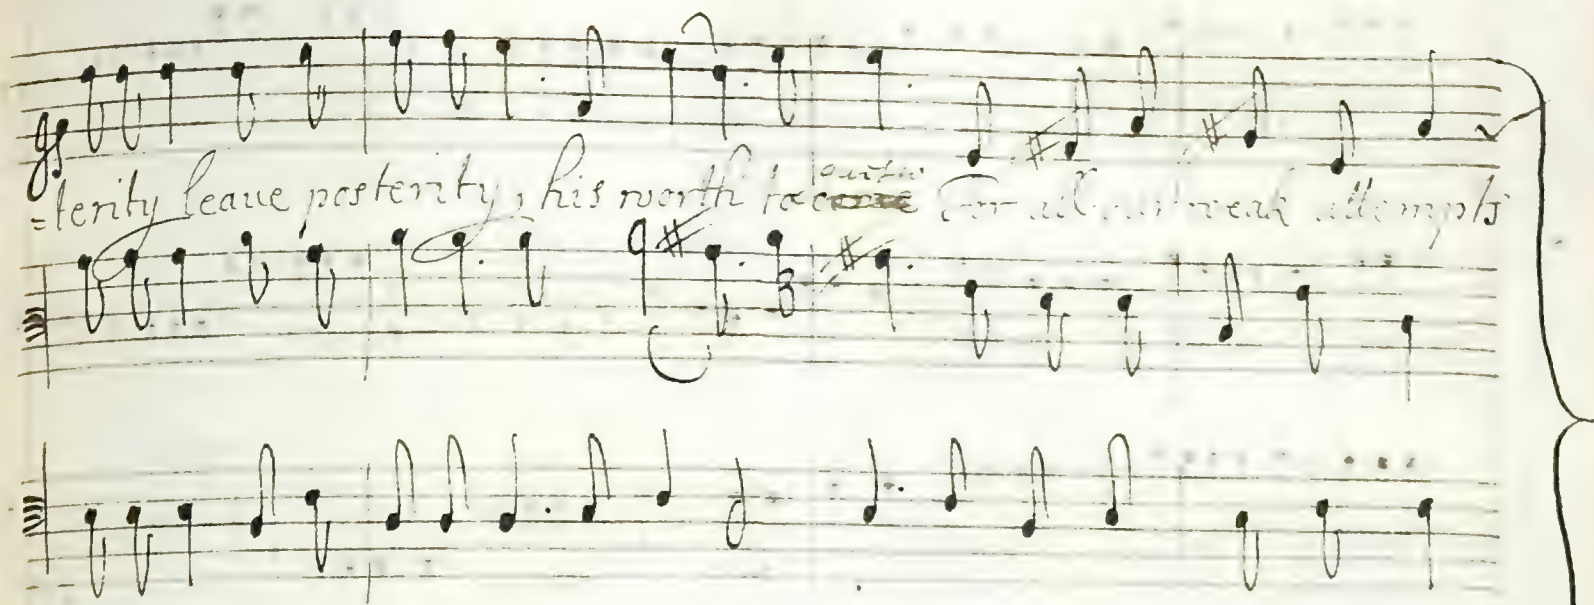 =terity leave posterity, his worth to For all our weak attempts